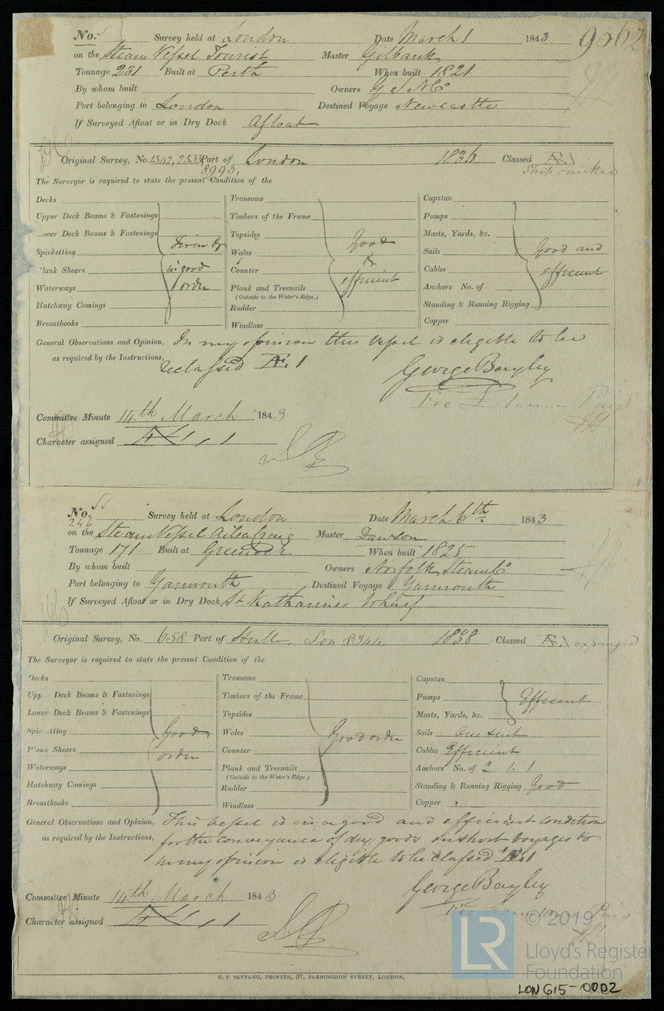 No. Survey held at London Date March 1 1843 9562
on the Steam Vessel Tourist Master Gilbank
Tonnage 231 Built at Perth When built 1821
By whom built Owners G S N Co
Port belonging to London Destined Voyage Newcastle
If Surveyed Afloat or in Dry Dock Afloat
Original Survey, No. 1542, 2533 Port of London 1836 Classed
8993,
The Surveyor is required to state the present Condition of the
Decks
Upper Deck Beams & Fastenings
Lower Deck Beams & Fastenings
Spirketting
Plank Shears
Waterways
Hatchway Comings
Breasthooks
in good
order
Transoms
Timbers of the Frame
Topsides
Wales
Counter
Plank and Treenails
(Outside to the Water's Edge.)
Rudder
Windlass
Good
&
efficient
Capstan
Pumps
Masts, Yards, &c.
Sails
Cables
Anchors No. of
Standing & Running Rigging
Copper
Good and
efficient
General Observations and Opinion, In my opinion this vessel is eligible to be
as required by the Instructions, reclassed Æ 1
George Bayley
Committee Minute 14th March 1843
Character assigned Æ 1
No. Survey held at London Date March 6th 1843
on the Steam Vessel Ailsa Craig Master Dawson
Tonnage 171 Built at When built 1825
By whom built Owners Norfolk Steam Co
Port belonging to Yarmouth Destined Voyage Yarmouth
If Surveyed Afloat or in Dry Dock St Katharines Wharf
Original Survey, No. 658 Port of Hull Lon 8344 1838 Classed expunged
The Surveyor is required to state the present Condition of the
Decks
Upper Deck Beams & Fastenings
Lower Deck Beams & Fastenings
Spirketting
Plank Shears
Waterways
Hatchway Comings
Breasthooks
Good
order
Transoms
Timbers of the Frame
Topsides
Wales
Counter
Plank and Treenails
(Outside to the Water's Edge.)
Rudder
Windlass
Good order
Capstan
Pumps
Masts, Yards, &c.
Efficient
Sails
Cables Efficient
Anchors No. of 2. 1. 1
Standing & Running Rigging Good
Copper
General Observations and Opinion, This vessel is in a good and efficient condition
as required by the Instructions, for the conveyance of dry goods on short voyages &
in my opinion is eligible to be classed Æ 1
George Bayley
Committee Minute 14th March 1843
Character assigned Æ 1
C. F. SEYFANG, PRINTER, 57, FARRINGDON STREET, LONDON.
LR
© 2019
Lloyd's Register
Foundation
LON615-0002